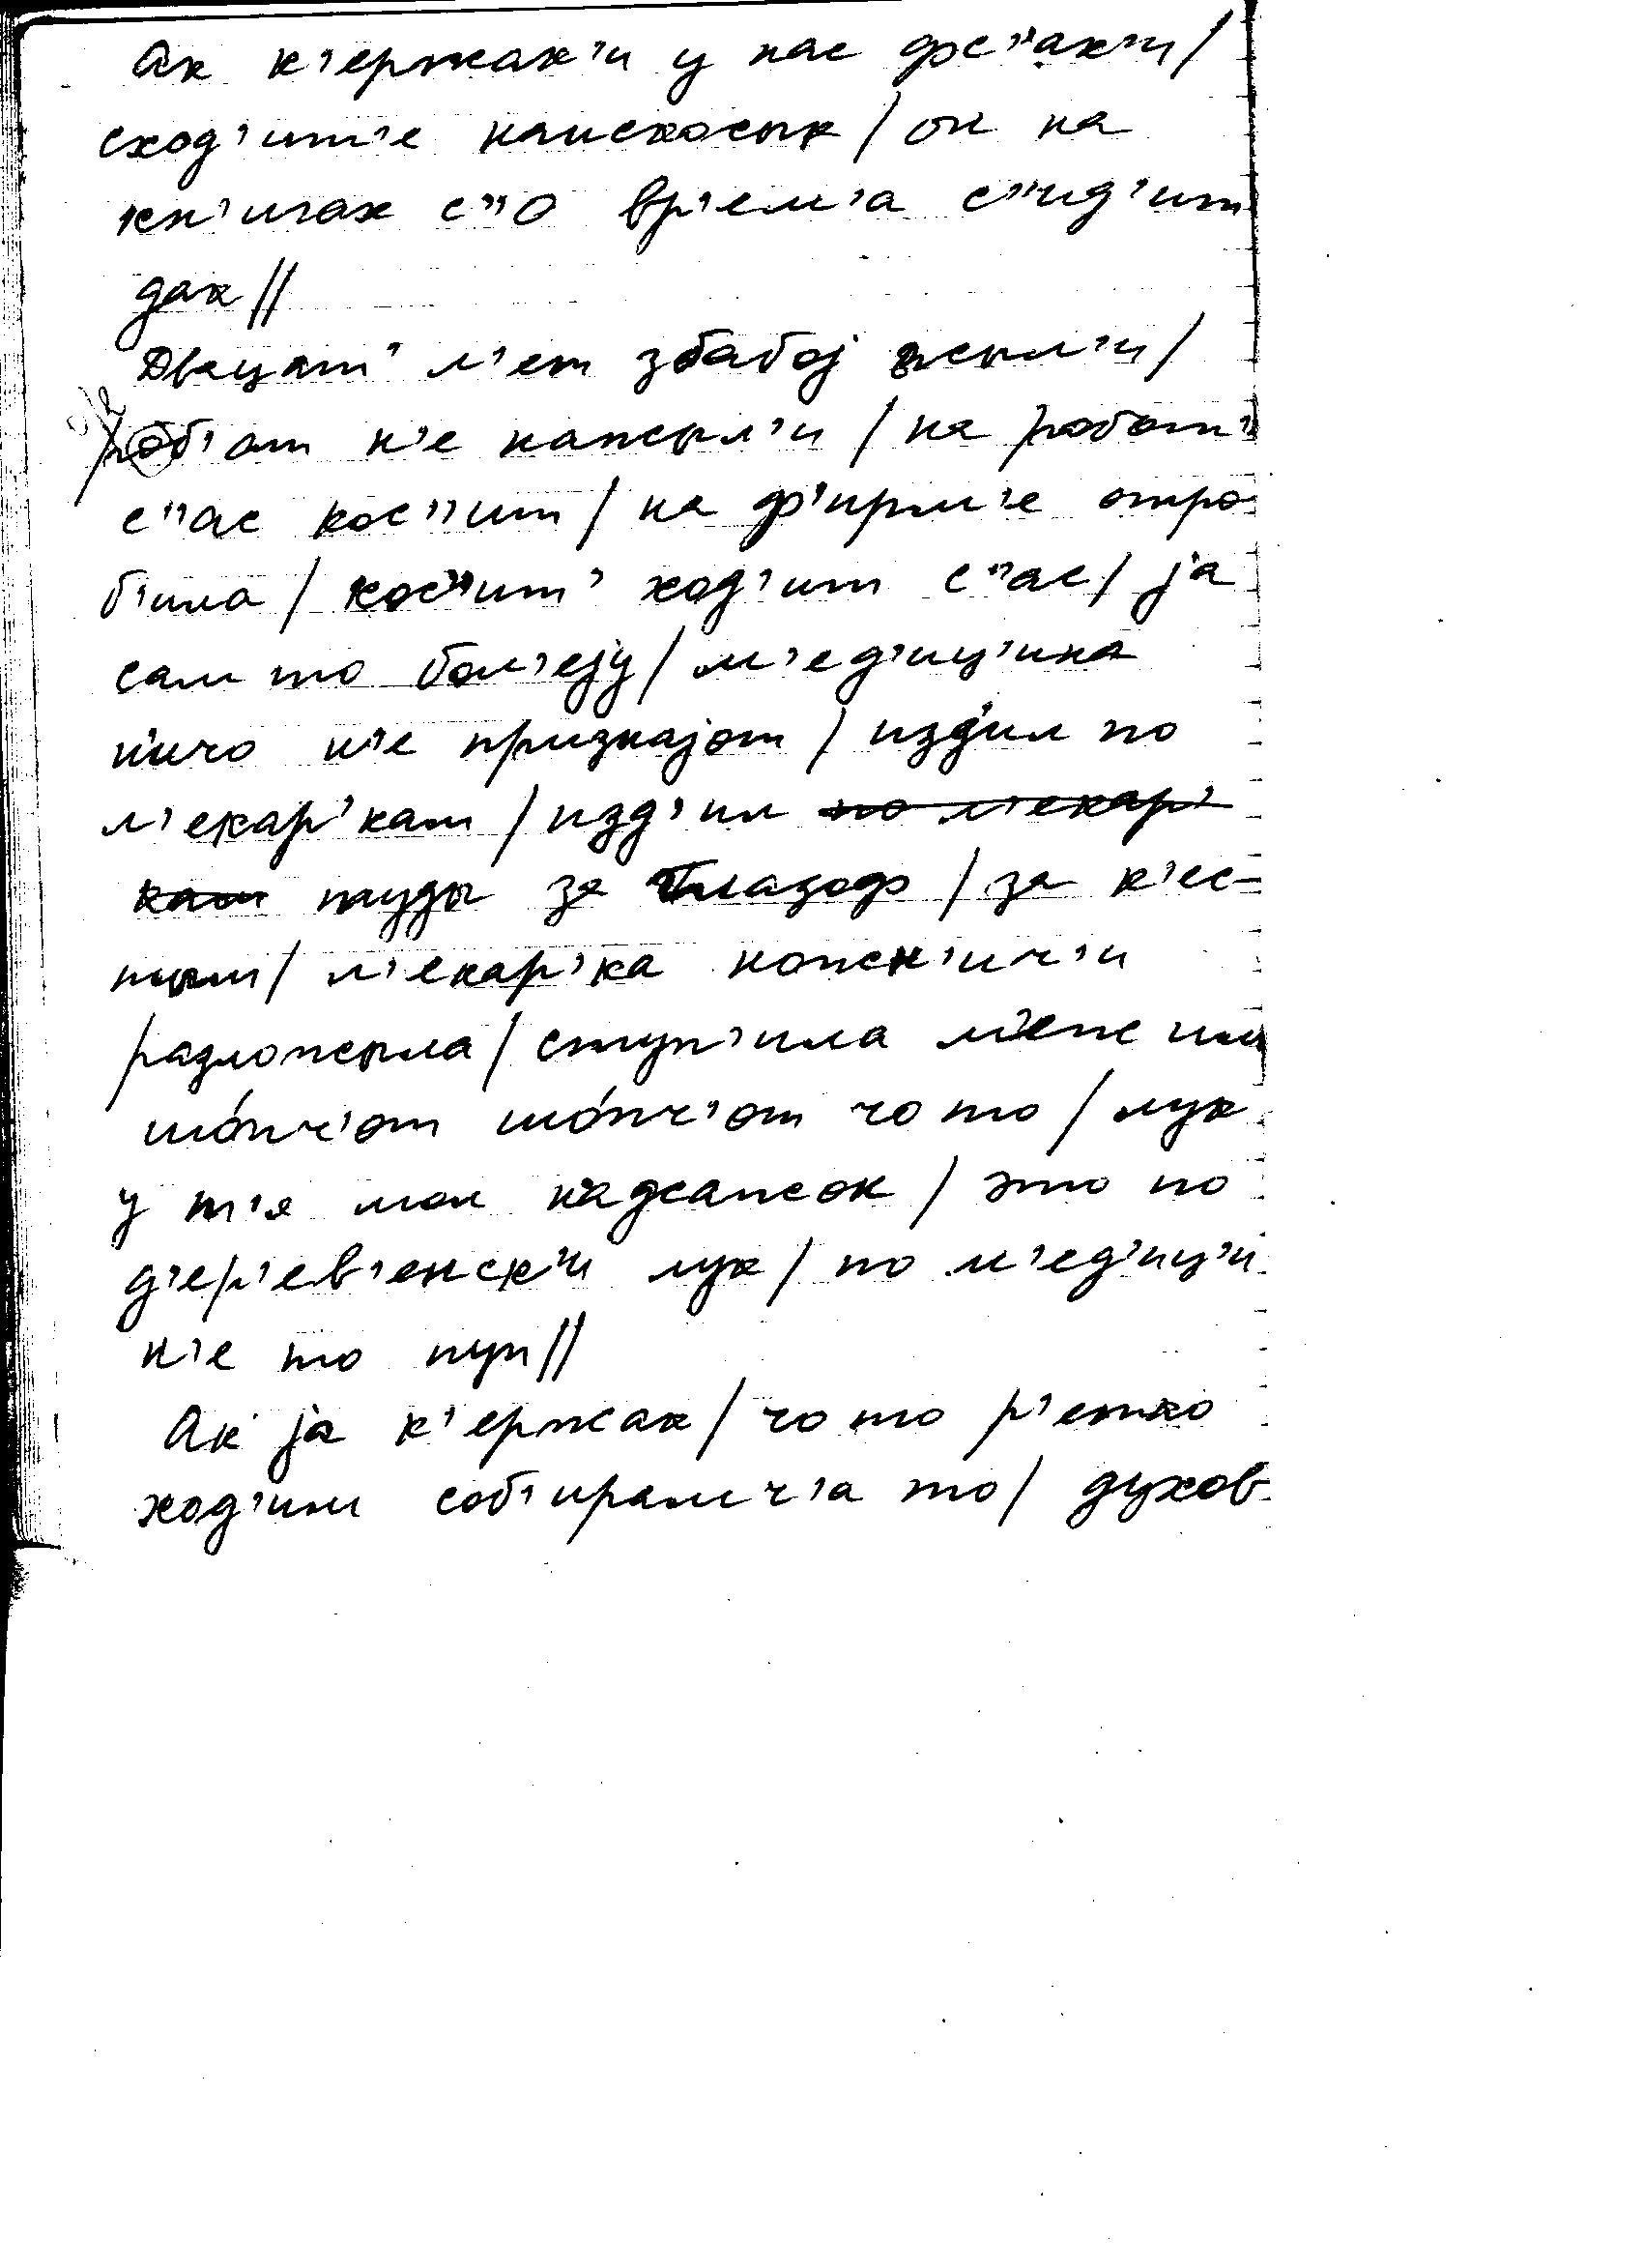 Ак к'ержак'и у нас фс"ак'и/
сход'ит'е наискосык / он на
кн'игах с"о вр'ем'а с"ид'ит
дак//
Двацат' л'ет збабој жыл'и/
роб'ат н'е нажыл'и / на работ'
с"ас кос"ит / на ф'ирм'е отро
б'ила / кос"ит' ход'ит с"ас / ја
сам то бол'ејy / м'ед'иц'ина
н'ичо н'е признајот / изд'ил по
л'екар'кам / изд'ил по л'екар'
кам туды за Глазоф / за к'ес-
тым / л'екар'ка ножн'ич'и
разложыла / ступ'ила м'еж им
шо́пч'от шо́пч'от чо то / лук
у т'а мол надсажок / это по
д'ер'ев'енск'и лук / по м'ед'иц'и
н'е то пуп//
Ак ја к'ержак / чо то р'етко
ход'им соб'ирамч'а то / духов